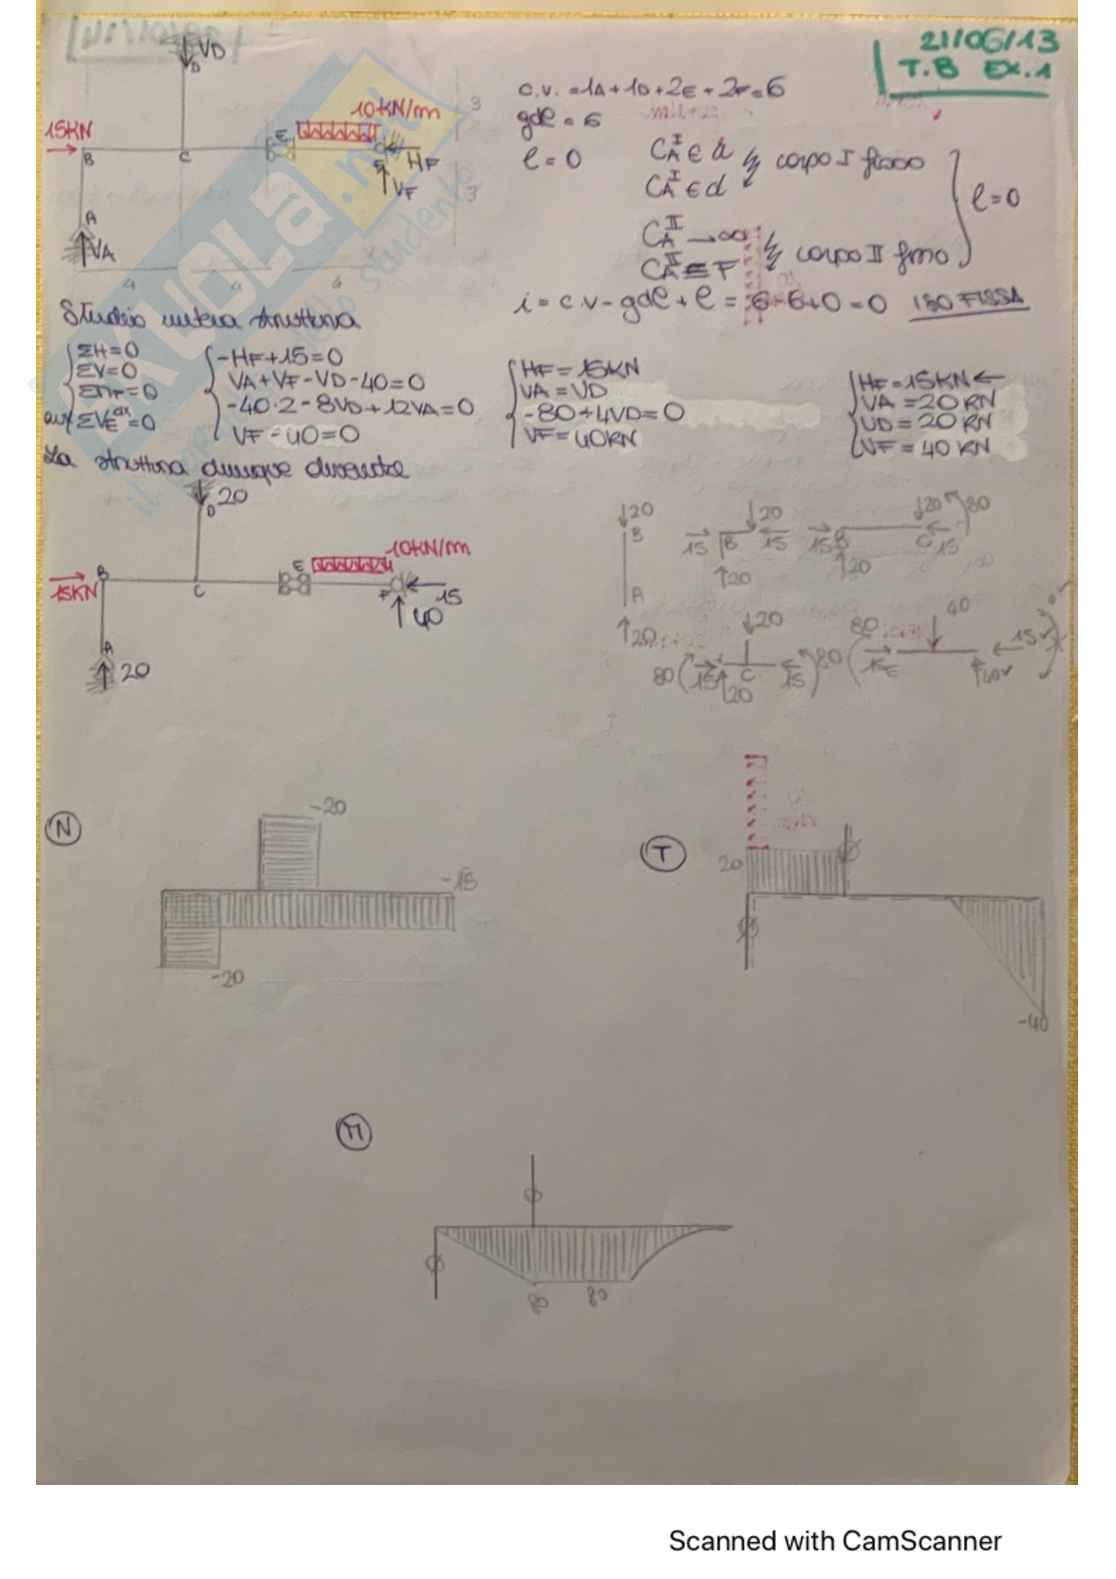 21/06/13
T.B EX.1
VD
D
15KN
B
C
E
10KN/m
F
HF
VF
A
VA
3
3
4
4
4
c.v. = 1A + 1D + 2E + 2F = 6
gdl = 6
l = 0
CA^I ∈ a
CA^I ∈ d
corpo I fisso
CA^II → ∞
CA^II ≡ F
corpo II fisso
l = 0
i = c.v - gdl + l = 6-6+0 = 0 ISO FISSA
Studio intera struttura
ΣH=0
ΣV=0
ΣMF=0
aux ΣVE^dx=0
-HF+15=0
VA+VF-VD-40=0
-40·2-8VD+12VA=0
VF-40=0
HF=15KN
VA=VD
-80+4VD=0
VF=40KN
HF=15KN←
VA=20KN
VD=20KN
VF=40KN
La struttura dunque diventa
20
D
15KN
B
C
E
10KN/m
F
15
40
A
20
20
B
A
20
15
B
20
15
20
15
B
20
20
80
C
15
80
15
20
C
20
15
80
80
E
40
15
40
N
-20
-15
-20
T
20
-40
M
80
80
Scanned with CamScanner